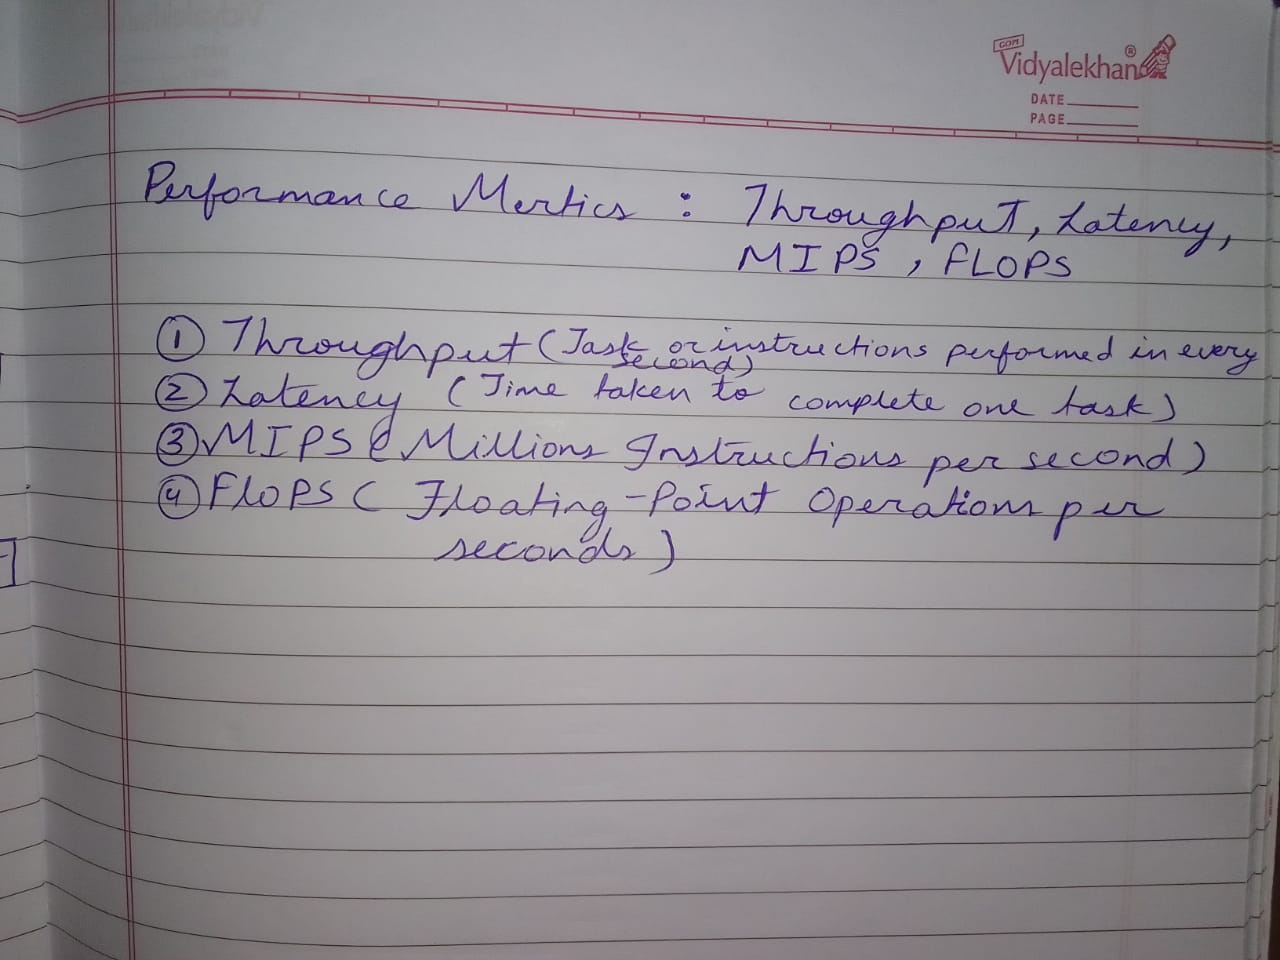 GOPI
Vidyalekhan®
DATE
PAGE
Performance Mertics : Throughput, Latency,
MIPS, FLOPS
① Throughput (Task or instructions performed in every
second)
② Latency (Time taken to complete one task)
③ MIPS (Millions Instructions per second)
④ FLOPS (Floating-Point Operations per
seconds)